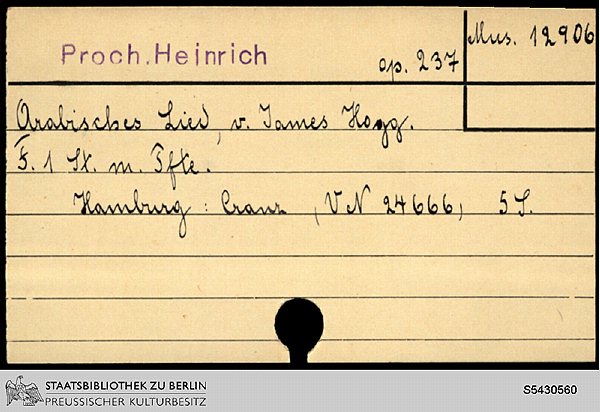 Proch, Heinrich
op. 237
Mus. 12906
Arabisches Lied, v. James Hogg.
F. 1 St. m. Pfte.
Hamburg: Cranz (VN 24666) 5 S.
STAATSBIBLIOTHEK ZU BERLIN
PREUSSISCHER KULTURBESITZ
S5430560